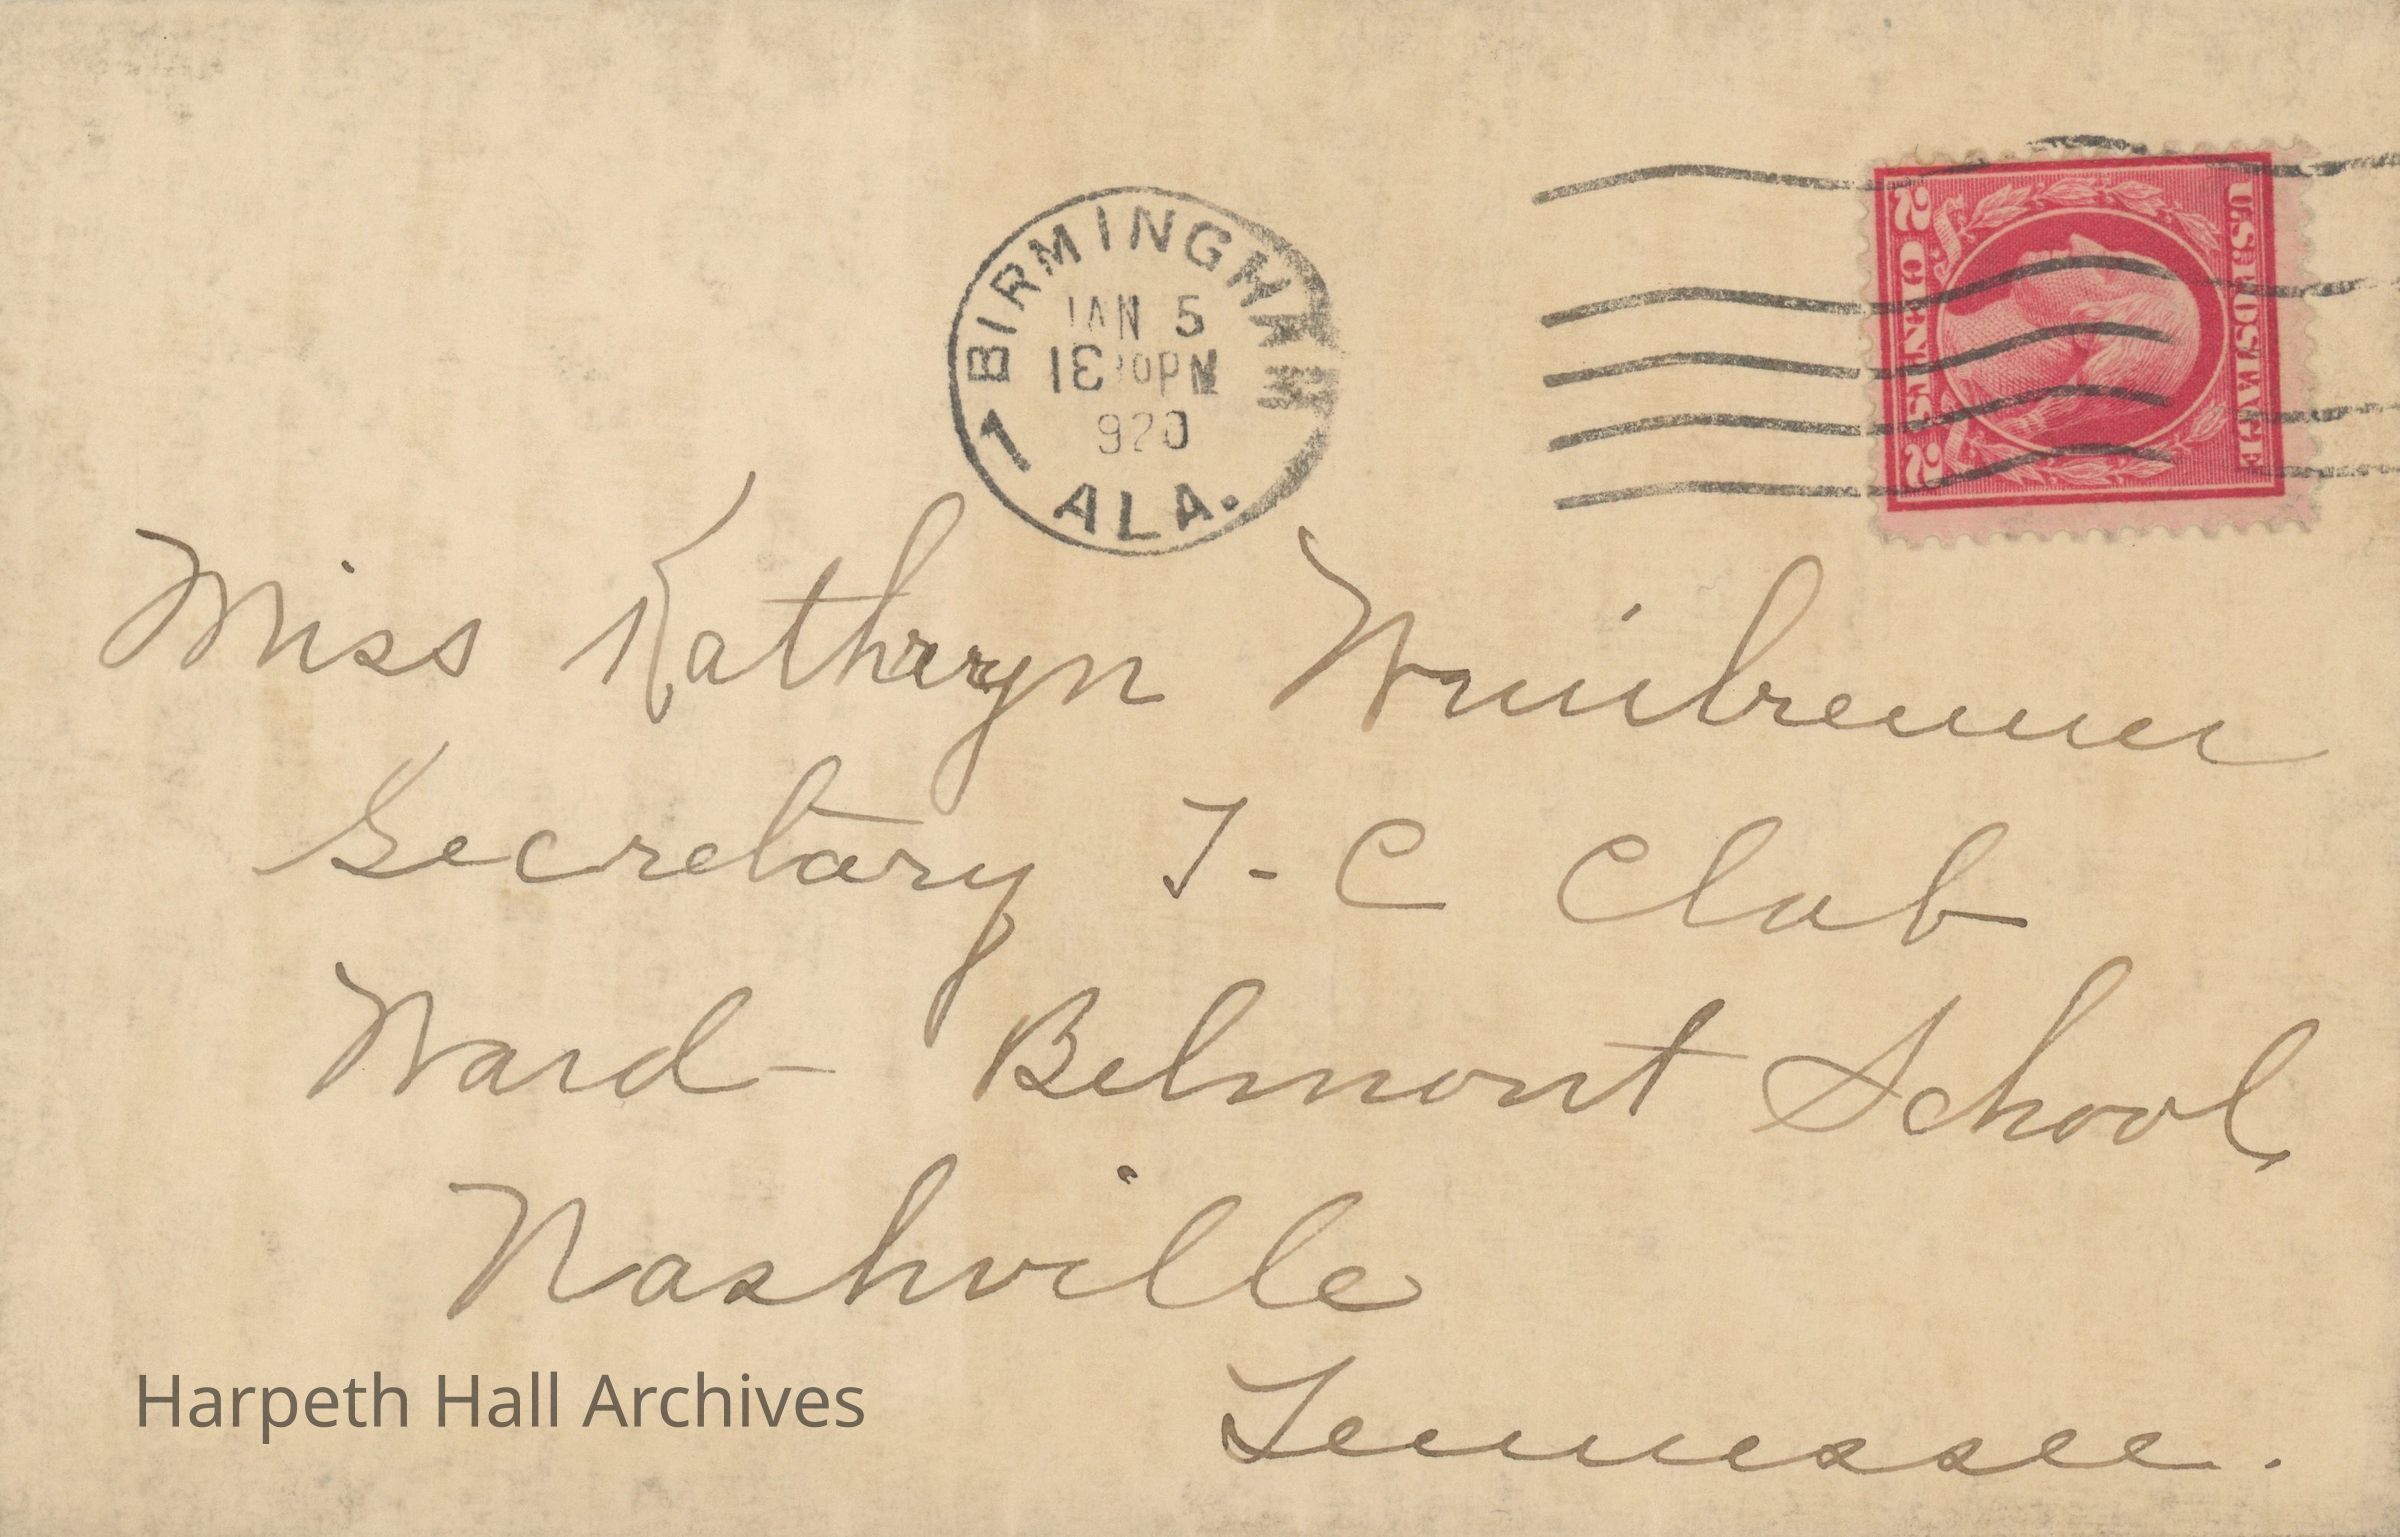 BIRMINGHAM
JAN 5
PM
920
1 ALA.
U.S. POSTAGE
2 CENTS 2
Miss Kathryn
Secretary T-C Club
Ward- Belmont School,
Nashville
Tennessee.
Harpeth Hall Archives